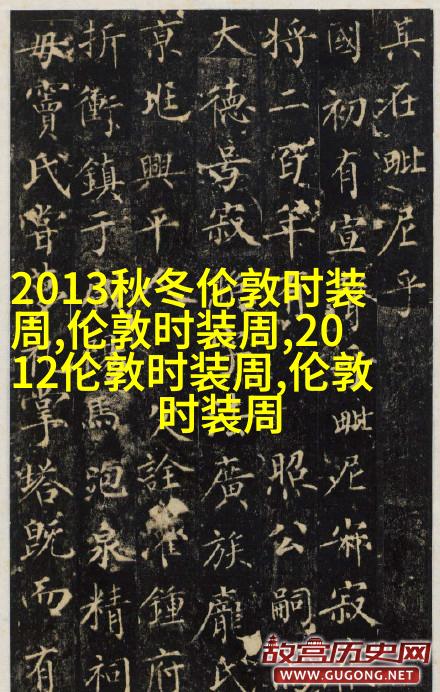 其在毗尼乎
國初有宣毗尼寂
將二百年照公嗣
大德号寂廣族龐氏
京兆興平詮灌鍾府
折衝鎮于馬泡泉精祠
毋竇氏嘗掌塔既而有
2013秋冬伦敦时装
周,伦敦时装周,20
12伦敦时装周,伦敦
时装周
故宫历史网
WWW.GUGONG.NET